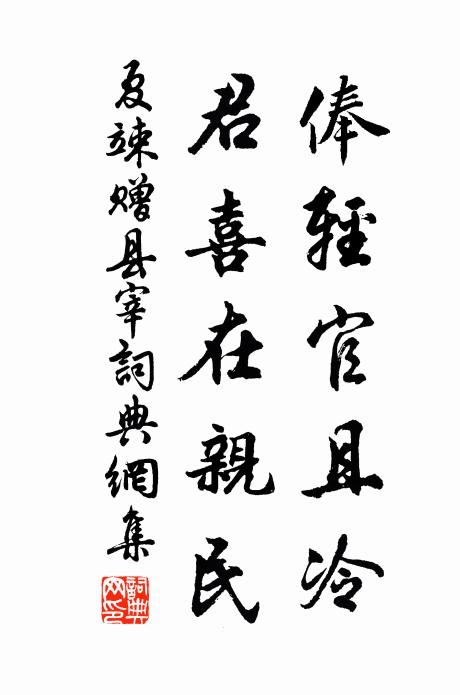 俸輕官且冷
君喜在親民
夏竦赠县宰詞典網集
詞典網印